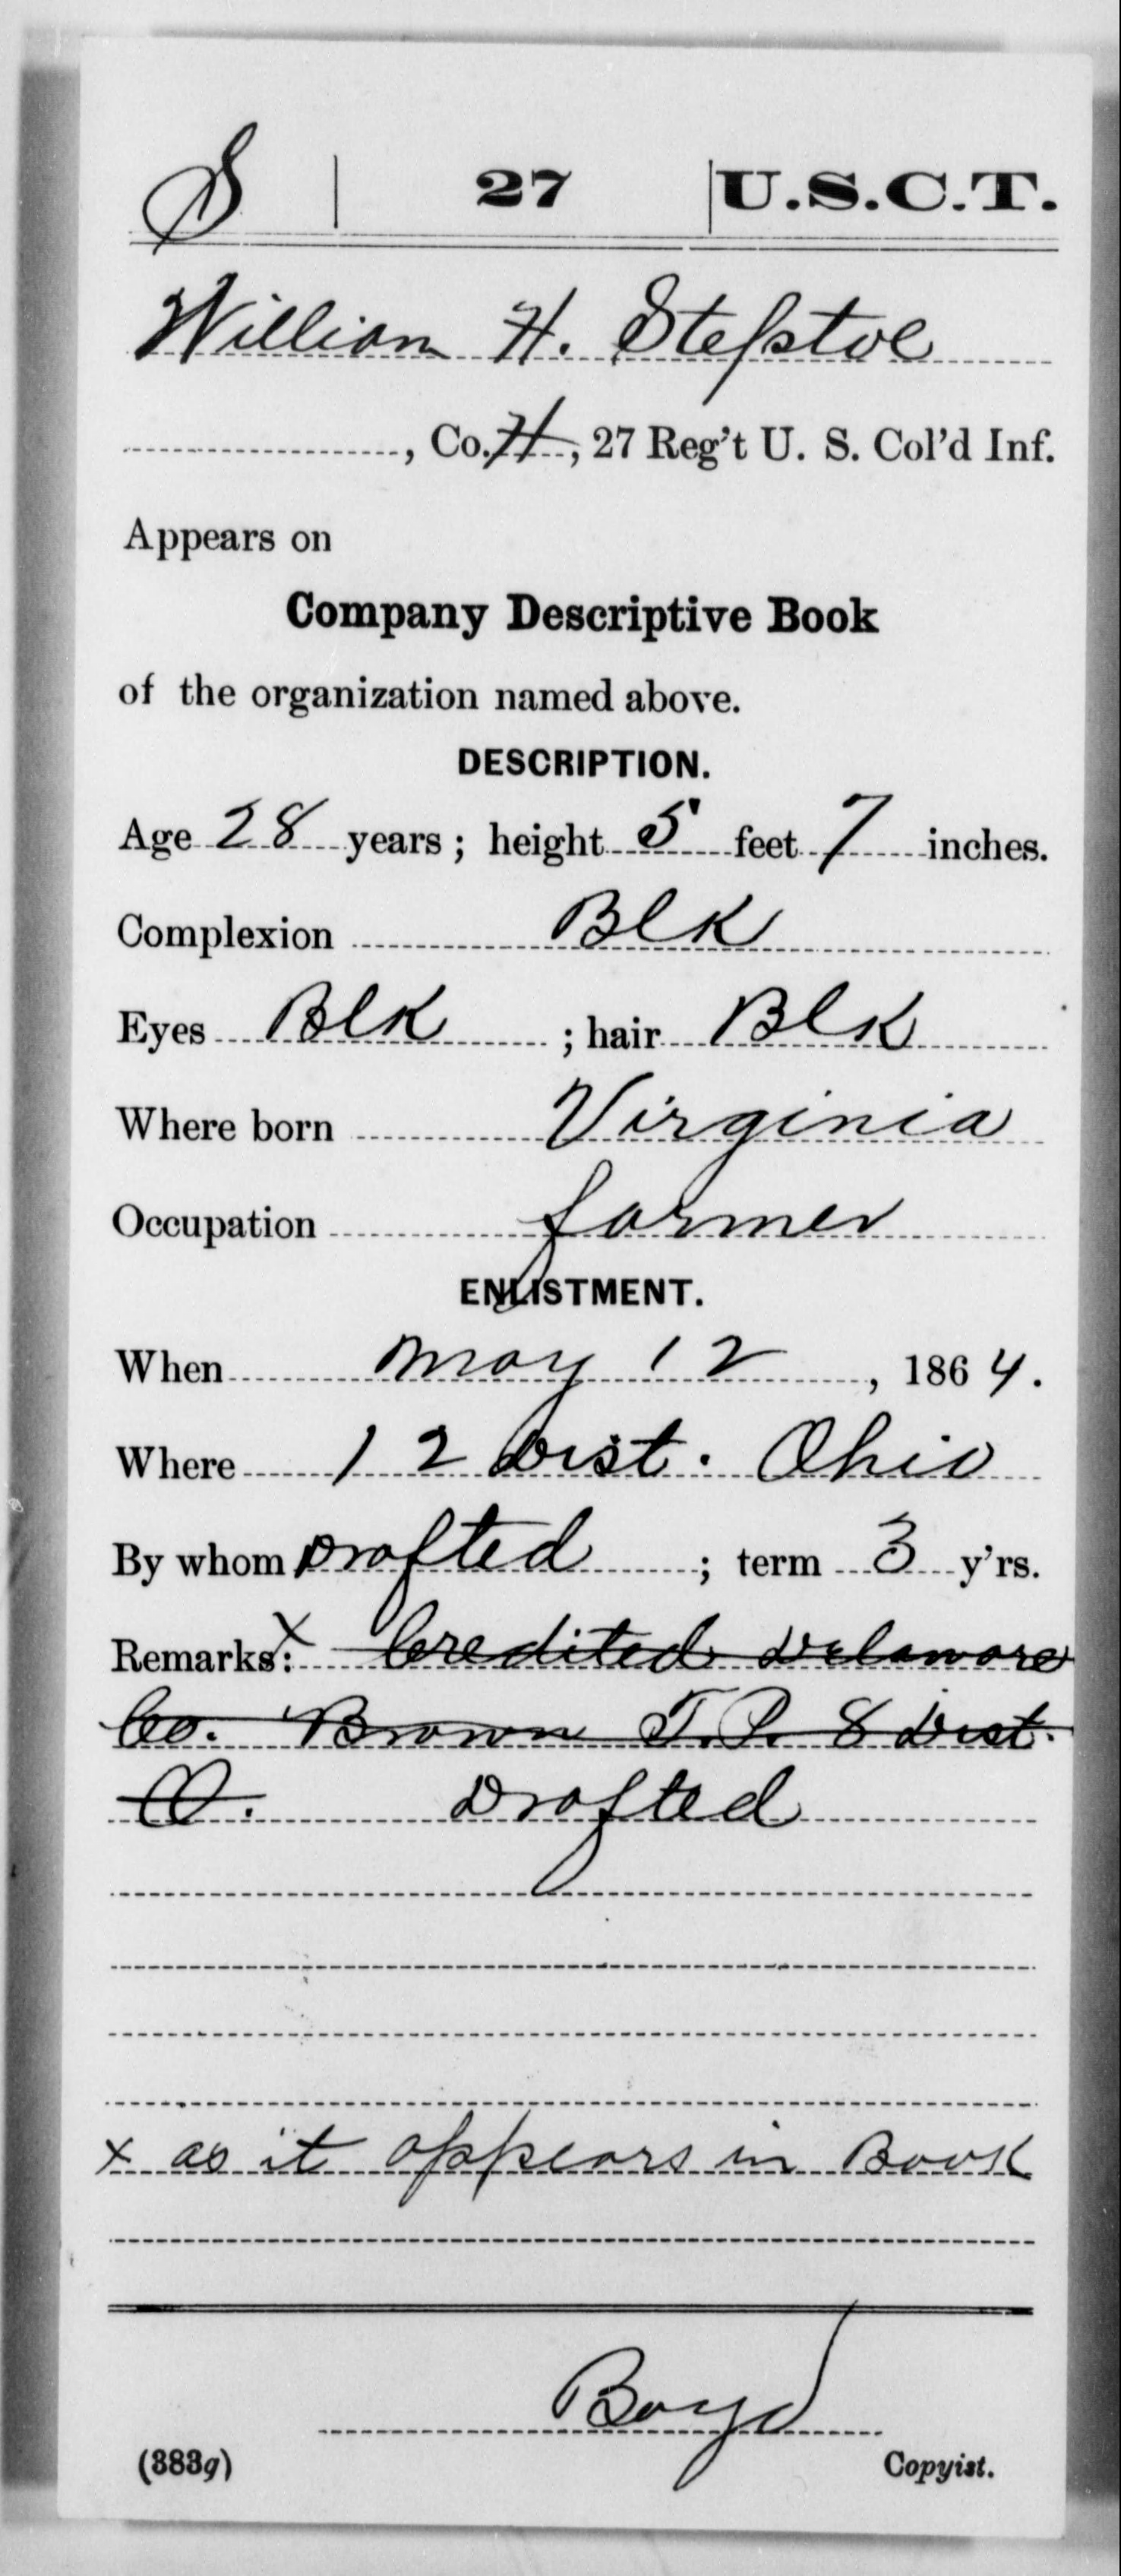 S | 27 | U.S.C.T.
William H. Stepstoe
, Co. H, 27 Reg't U. S. Col'd Inf.
Appears on
Company Descriptive Book
of the organization named above.
DESCRIPTION.
Age 28 years; height 5 feet 7 inches.
Complexion Blk
Eyes Blk ; hair Blk
Where born Virginia
Occupation farmer
ENLISTMENT.
When May 12, 1864.
Where 12 Dist. Ohio
By whom Drafted ; term 3 y'rs.
Remarks: x Credited Delaware
Co. Brown T.P. 8 Dist.
O. Drafted
x as it appears in Book
Boyd
(383g) Copyist.